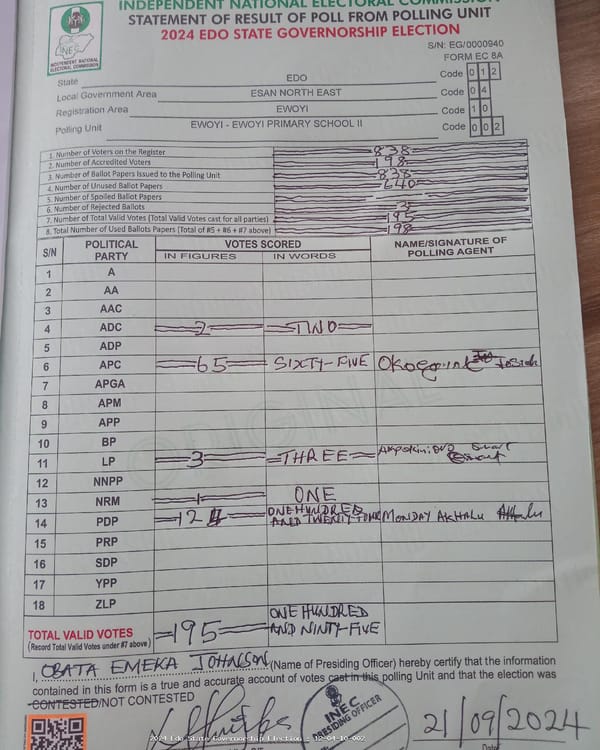 INDEPENDENT NATIONAL ELECTORAL COMMISSION
STATEMENT OF RESULT OF POLL FROM POLLING UNIT
2024 EDO STATE GOVERNORSHIP ELECTION
INEC
INDEPENDENT NATIONAL ELECTORAL COMMISSION
S/N: EG/0000940
FORM EC 8A
State EDO Code 0 1 2
Local Government Area ESAN NORTH EAST Code 0 4
Registration Area EWOYI Code 1 0
Polling Unit EWOYI - EWOYI PRIMARY SCHOOL II Code 0 0 2
1. Number of Voters on the Register 838
2. Number of Accredited Voters 198
3. Number of Ballot Papers Issued to the Polling Unit 838
4. Number of Unused Ballot Papers 640
5. Number of Spoiled Ballot Papers
6. Number of Rejected Ballots 3
7. Number of Total Valid Votes (Total Valid Votes cast for all parties) 195
8. Total Number of Used Ballots Papers (Total of #5 + #6 + #7 above) 198
S/N POLITICAL PARTY VOTES SCORED NAME/SIGNATURE OF POLLING AGENT
IN FIGURES IN WORDS
1 A
2 AA
3 AAC
4 ADC 2 TWO
5 ADP
6 APC 65 SIXTY-FIVE
7 APGA
8 APM
9 APP
10 BP
11 LP 3 THREE
12 NNPP
13 NRM 1 ONE
14 PDP 124 ONE HUNDRED AND TWENTY FOUR MONDAY AKHALU
15 PRP
16 SDP
17 YPP
18 ZLP
TOTAL VALID VOTES 195 ONE HUNDRED AND NINTY-FIVE
(Record Total Valid Votes under #7 above)
I, OBATA EMEKA JOHNSON (Name of Presiding Officer) hereby certify that the information
contained in this form is a true and accurate account of votes cast in this polling Unit and that the election was
CONTESTED/NOT CONTESTED
INEC
PRESIDING OFFICER
21/09/2024
Date